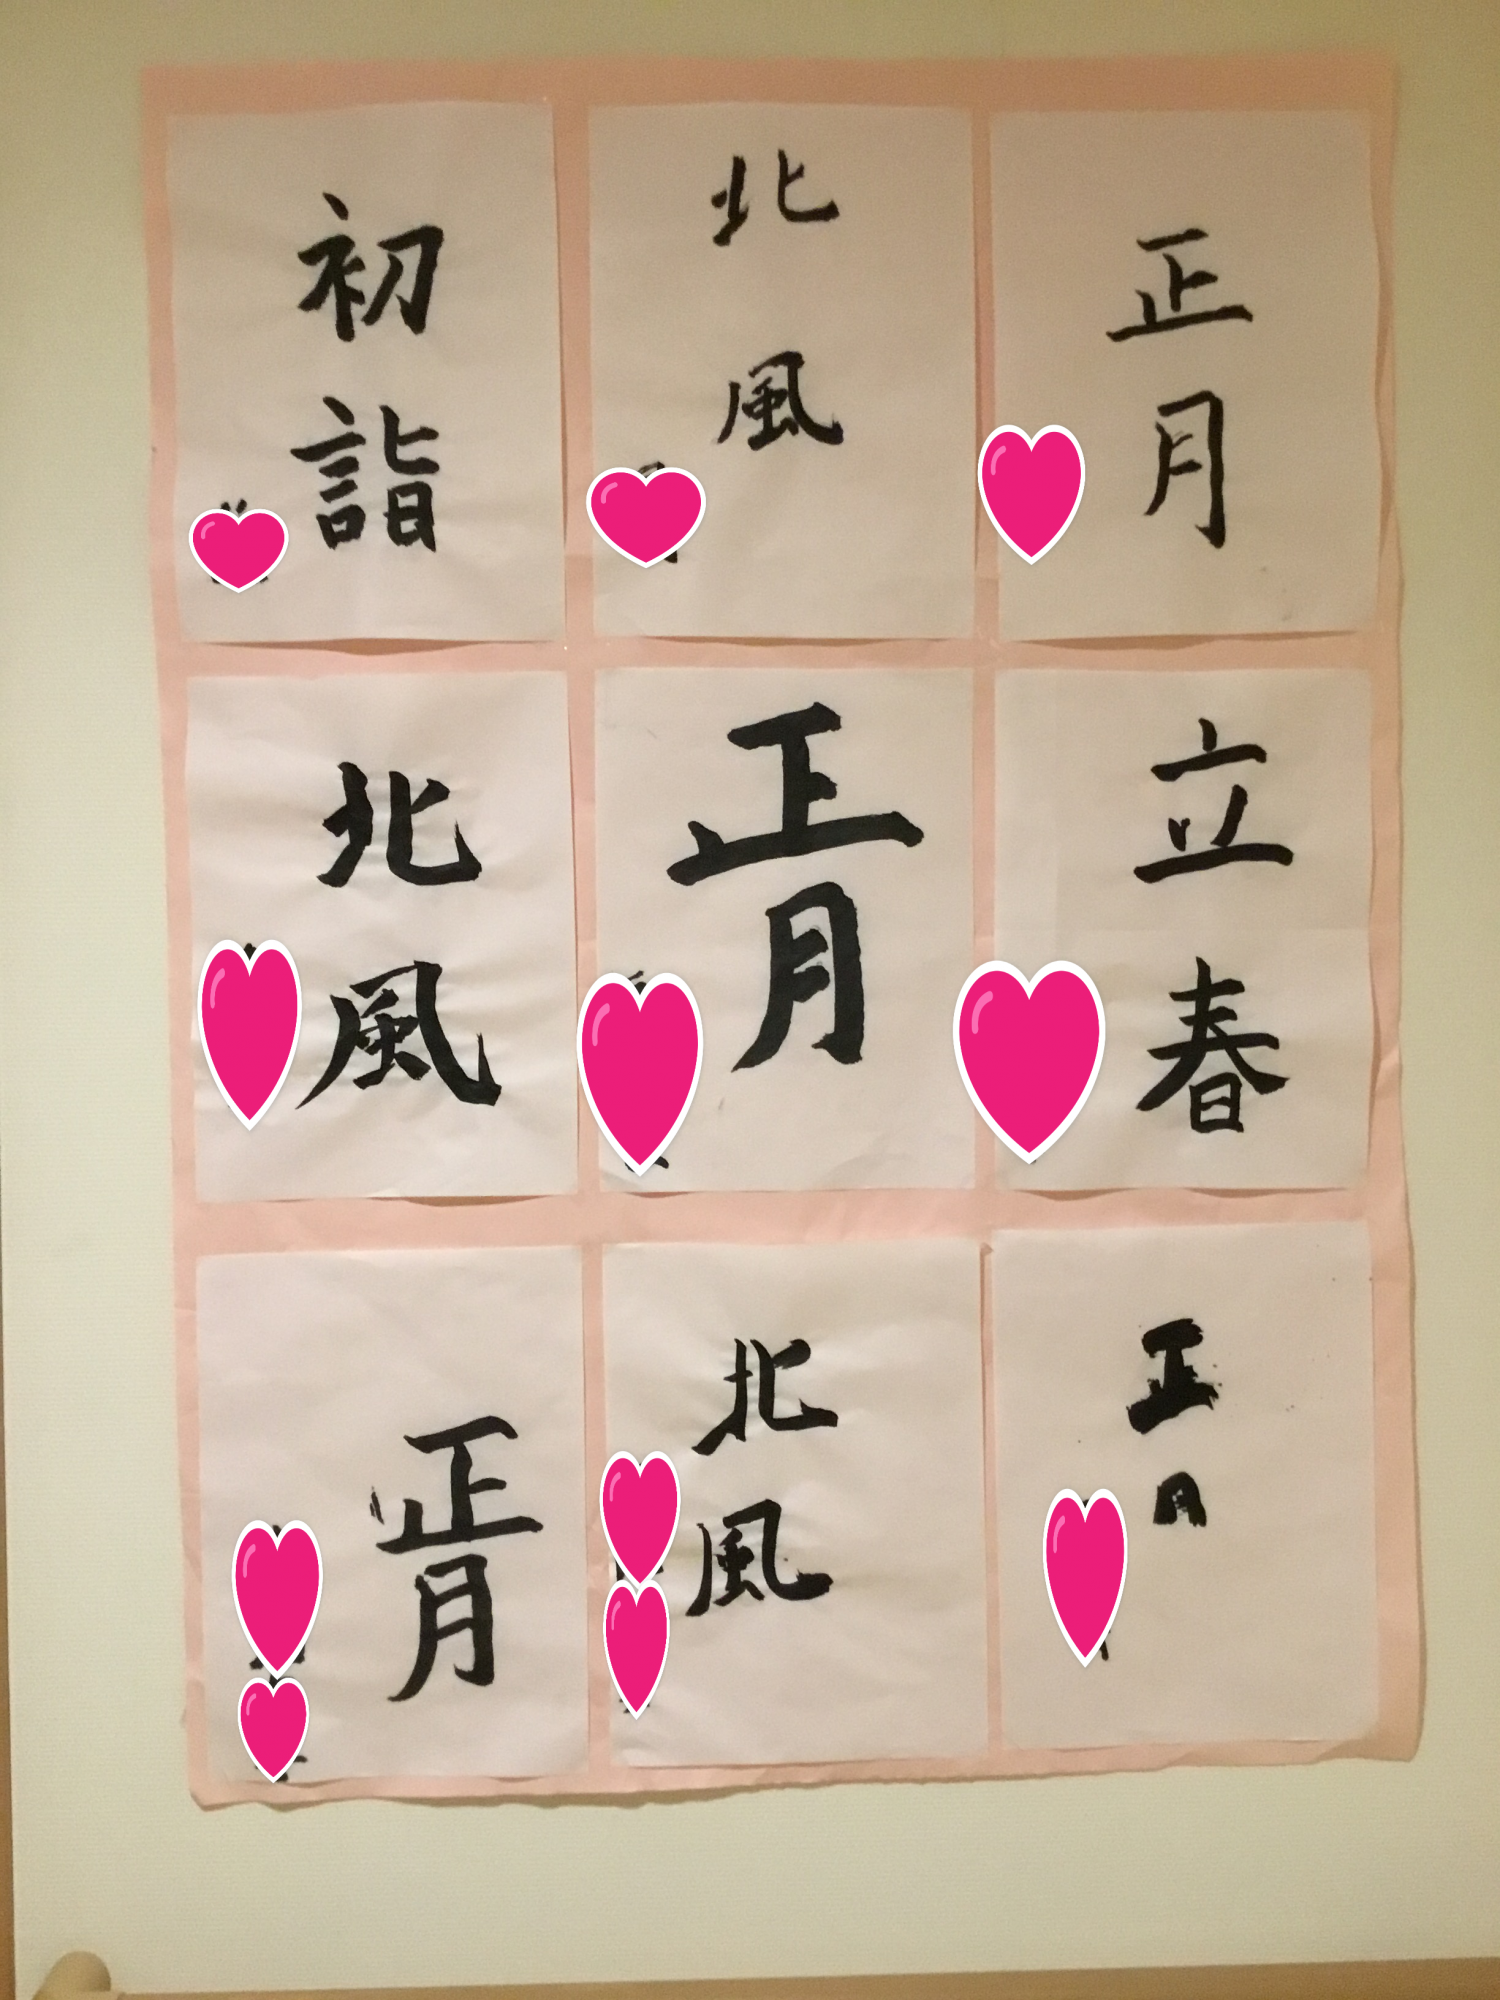 初詣
北風
正月
北風
正月
立春
正月
北風
正月